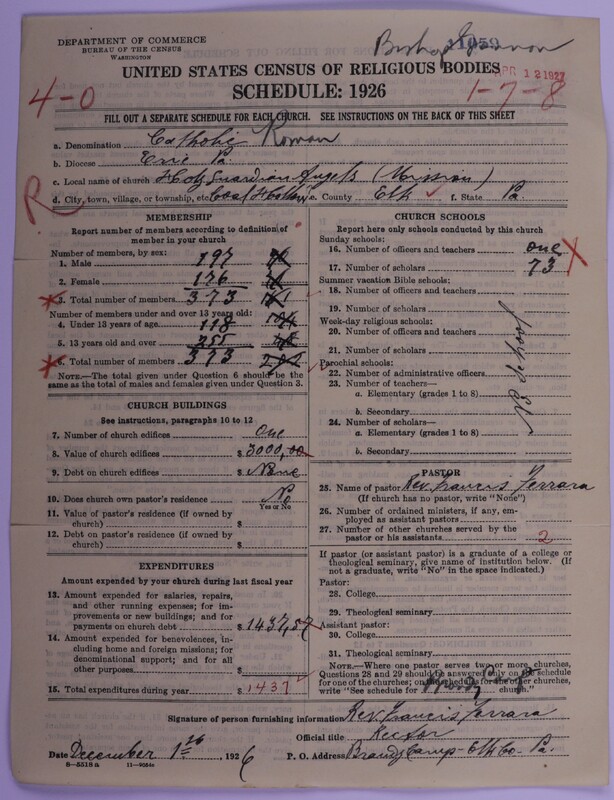 DEPARTMENT OF COMMERCE
BUREAU OF THE CENSUS
WASHINGTON
Bishop Gannon
11059
UNITED STATES CENSUS OF RELIGIOUS BODIES
APR 12 1927
SCHEDULE: 1926
4-0
1-7-8
FILL OUT A SEPARATE SCHEDULE FOR EACH CHURCH. SEE INSTRUCTIONS ON THE BACK OF THIS SHEET
a. Denomination Catholic Roman
b. Diocese Erie Pa.
c. Local name of church Holy Guardian Angels (Mission)
R
d. City, town, village, or township, etc. Coal Hollow e. County Elk f. State Pa.
MEMBERSHIP
Report number of members according to definition of
member in your church
Number of members, by sex:
1. Male 197
2. Female 176
3. Total number of members 373
Number of members under and over 13 years old:
4. Under 13 years of age 118
5. 13 years old and over 255
6. Total number of members 373
NOTE.—The total given under Question 6 should be the
same as the total of males and females given under Question 3.
CHURCH BUILDINGS
See instructions, paragraphs 10 to 12
7. Number of church edifices One
8. Value of church edifices $ 3000,00
9. Debt on church edifices $ None
10. Does church own pastor's residence No
Yes or No
11. Value of pastor's residence (if owned by
church) $
12. Debt on pastor's residence (if owned by
church) $
EXPENDITURES
Amount expended by your church during last fiscal year
13. Amount expended for salaries, repairs,
and other running expenses; for im-
provements or new buildings; and for
payments on church debt $ 1437,57
14. Amount expended for benevolences, in-
cluding home and foreign missions; for
denominational support; and for all
other purposes $
15. Total expenditures during year $ 1437
CHURCH SCHOOLS
Report here only schools conducted by this church
Sunday schools:
16. Number of officers and teachers one
17. Number of scholars 73
Summer vacation Bible schools:
18. Number of officers and teachers
19. Number of scholars
Week-day religious schools:
20. Number of officers and teachers
21. Number of scholars
Parochial schools:
22. Number of administrative officers
23. Number of teachers—
a. Elementary (grades 1 to 8)
b. Secondary
24. Number of scholars—
a. Elementary (grades 1 to 8)
b. Secondary
No school
PASTOR
25. Name of pastor Rev. Francis Ferrara
(If church has no pastor, write "None")
26. Number of ordained ministers, if any, em-
ployed as assistant pastors
27. Number of other churches served by the
pastor or his assistants 2
If pastor (or assistant pastor) is a graduate of a college or
theological seminary, give name of institution below. (If
not a graduate, write "No" in the space indicated.)
Pastor:
28. College
29. Theological seminary
Assistant pastor:
30. College
31. Theological seminary
NOTE.—Where one pastor serves two or more churches,
Questions 28 and 29 should be answered only on the schedule
for one of the churches; on the schedules for the other churches,
write "See schedule for church."
Signature of person furnishing information Rev. Francis Ferrara
Official title Rector
Date December 1st 1926
P. O. Address Brandy Camp - Elk Co. Pa.
8—5518 a 11—9284